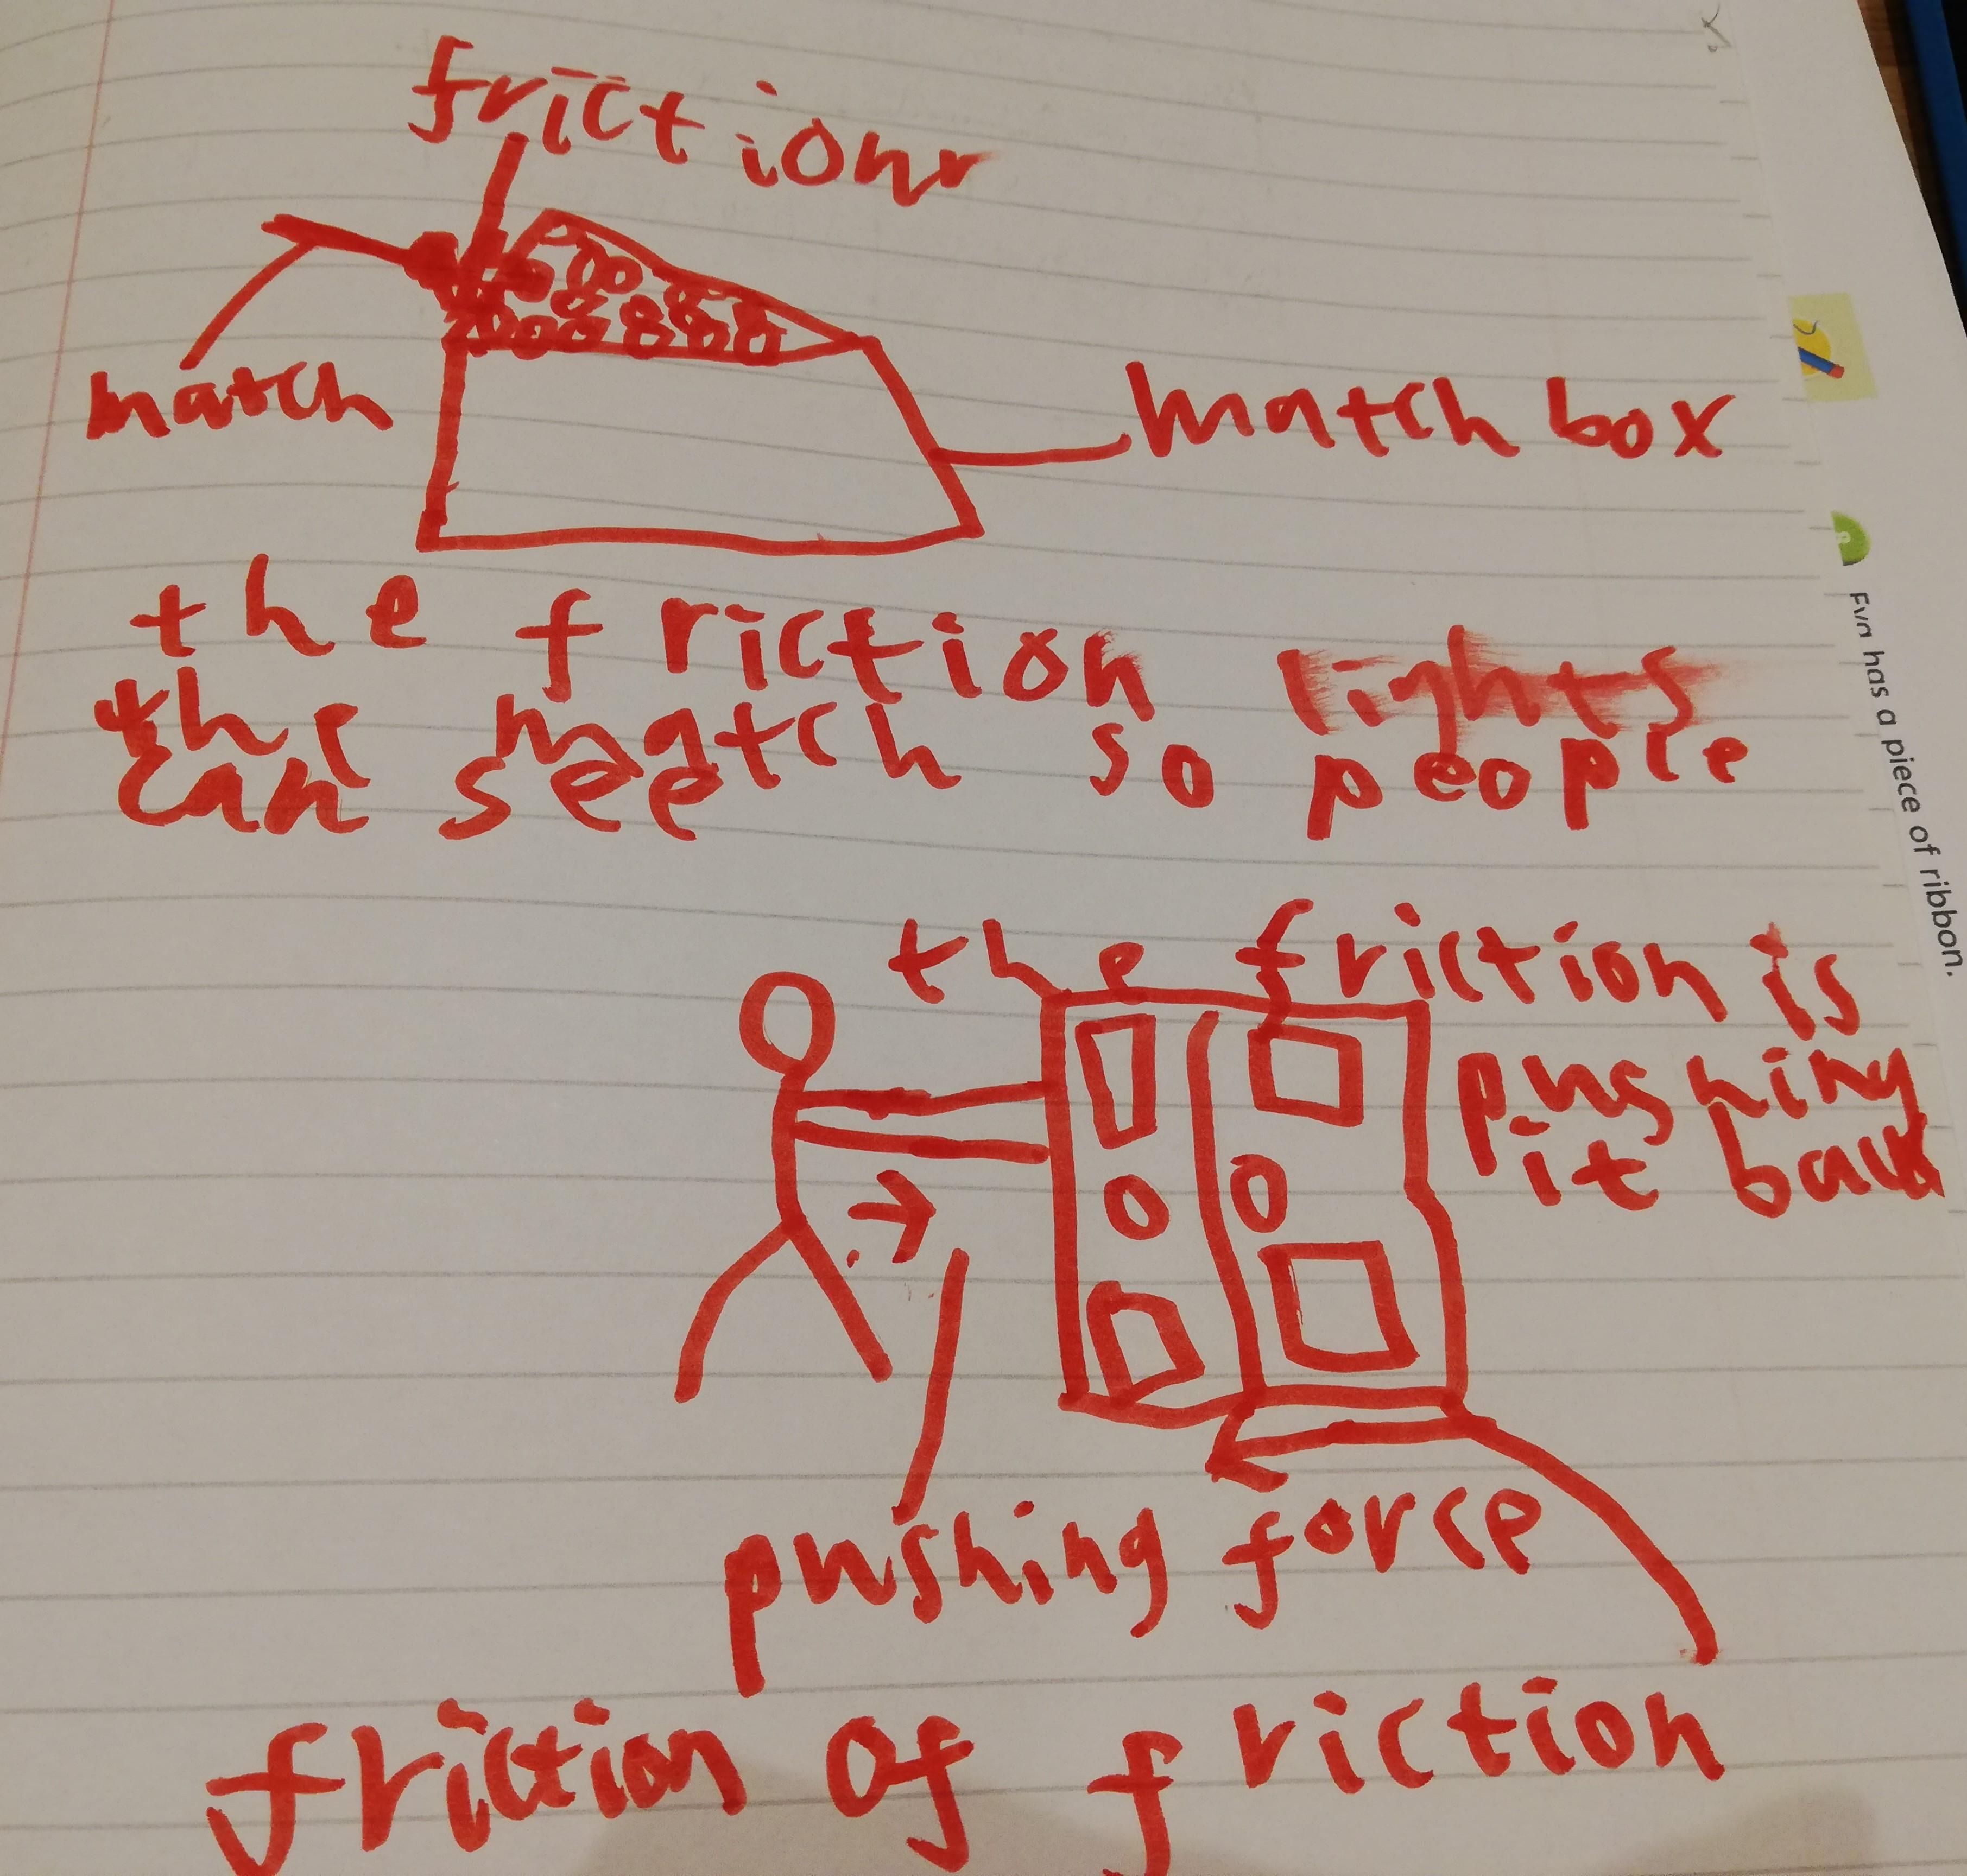 friction
match
match box
the friction lights
the match so people
can see
the friction is
pushing
it back
pushing force
friction of friction
Eva has a piece of ribbon.